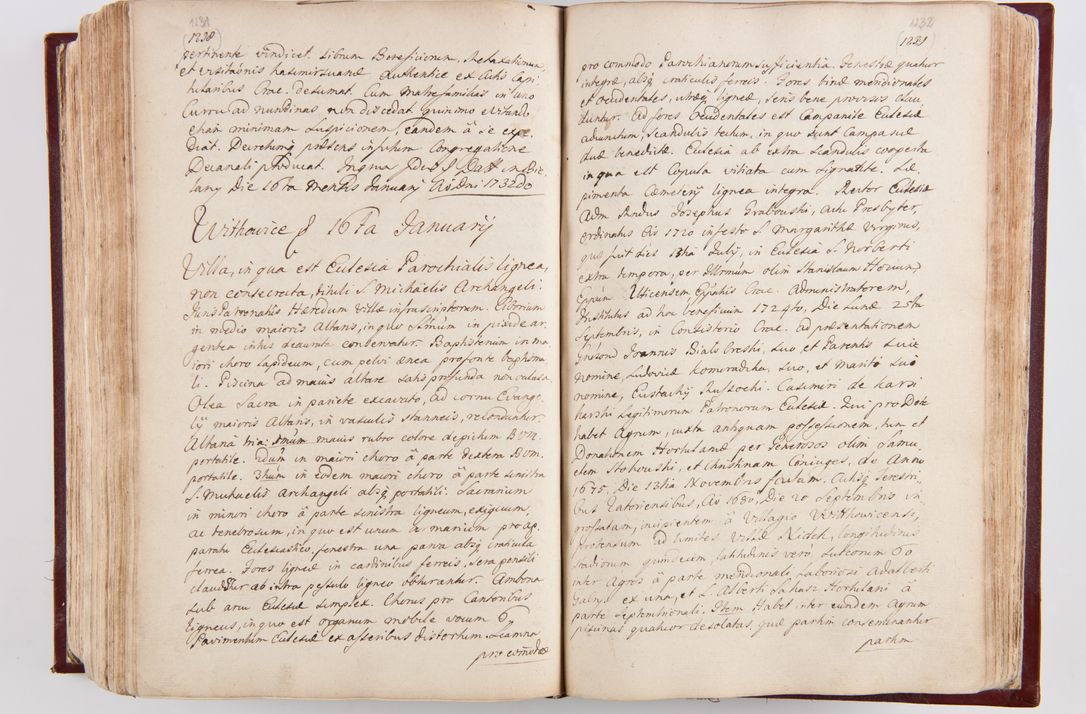 1231
(1238)
pertinente vindicet. Librum Beneficiorum, Retaxationum,
et visitaonis hasimirsuanæ authentice ex Actis Capi
tularibus Crac. desumat. Cum matre familias in uno
Curru ad nundinas non discedat, quinimo evitando
etiam minimam suspicionem, eandem â se expe
diat. Decretumq præsens in primum Congregatione
Decanali producat. In qrum
lany Die 16ta Mensis January Ao Dni 1732do
Withowice d 16ta January
Villa, in qua est Eulesia Parochialis lignea,
non consecrata, tituli S. Michaelis Archangeli.
Juris Patronatus Hæredum villæ infrascriptorum. Ciborium
in medio maioris Altaris, in quo Ssmum in pixide ar
gentea intus deaurata conservatur. Baptisterium in ma
iori choro lapideum, cum pelvi ænea pro fonte baptisma
li. Piscina ad maius altare satis profunda non clausa.
Olea Sacra in pariete excavato, ad cornu Evange
lij maioris Altaris, in vasculis stanneis, reconduntur.
Altaria tria: 1mum maius rubro colore depictum B.V.M.
portatile. 2dum in maiori choro â parte dextera B.V.M.
portatile. 3tium in eodem maiori choro â parte sinistra
S. Michaelis Archangeli absq portatili. Sacrarium
in minori choro â parte sinistra ligneum, exiguum,
ac tenebrosum, in quo est unum armarium pro ap
paratu Ecclesiastico, fenestra una parva absq craticula
ferrea. Fores ligneæ in cardinibus ferreis, sera pensili
clauditur ab intra pessulo ligneo obturantur. Ambona
sub arcu Eulesiæ simplex. Chorus pro Cantoribus
ligneus, in quo est organum mobile vocum 6.
Pavimentum Eulesiæ ex asseribus distortum. Scamna
pro comodo
1232
(1239)
pro commodo Parochianorum sufficientia. Fenestræ quatuor
integræ, absq craticulis ferreis. Fores binæ meridionales
et Occidentales, utræq ligneæ, seris bene provisis clau
duntur. Ad fores Occidentales est Campanile Eulesiæ
adiunctum, scandulis tectum, in quo sunt Campanulæ
duæ benedictæ. Eulesia ab extra scandulis cooperta
in qua est Copula vitiata cum signatite. Sæ
pimenta Cæmeterij lignea integra. Rector Eulesiæ
Adm Rndus Josephus Grabowski, actu Presbyter,
ordinatus Ao 1720 in festo S. Margarithæ Virginis,
qus fuit dies 13tia July, in Eulesia S. Norberti
extra tempora, per Illrmum olim Stanislaum Hosium
Eppum Uticensem Eppatus Crac. Administratorem,
Institutus ad hoc beneficium 1724to, Die Lunæ 25ta
Septembris, in Consistorio Crac. ad præsentationem
Gnsord Joannis Bialobreski, suo, et Parentis suæ
nomine, Ludovicæ Komeradzka, suo, et Mariti sui
nomine, Eustachij Russocki. Casimiri de Karsi
Karski legitimorum Patronorum Eulesiæ. Qui pro Dote
habet Agrum, iuxta antiquam possessionem, tum et
Donationem Hortulanæ per Generosos olim Samu
elem Stokowski, et Christinam Coniuges, de Anno
1675, Die 13tia Novembris factam. Actisq Terestri
bus Zatoriensibus, Ao 1680, Die 20 Septembris in
grossatam, incipientem â Villagio Withowicensi,
protensum ad limites Villæ Nidek, longitudinis
stadiorum quindecim, latitudinis vero sulcorum 60
inter Agros â parte meridionali, laboriosi Adalberti
Galus ex una, et L. Alberti Sahasz Hortulani â
parte Septemtrionali. Item Habet inter eundem Agrum
piscinas quatuor desolatas, quæ partim conseminantur
partim